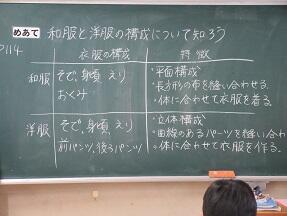 めあて 和服と洋服の構成について知ろう
P114
衣服の構成 特徴
和服 そで、身頃 えり
おくみ
・平面構成
・長方形の布を縫い合わせる。
・体に合わせて衣服を着る。
洋服 そで、身頃 えり
前パンツ、後ろパンツ
・立体構成
・曲線のあるパーツを縫い合わ
・体に合わせて衣服を作る。